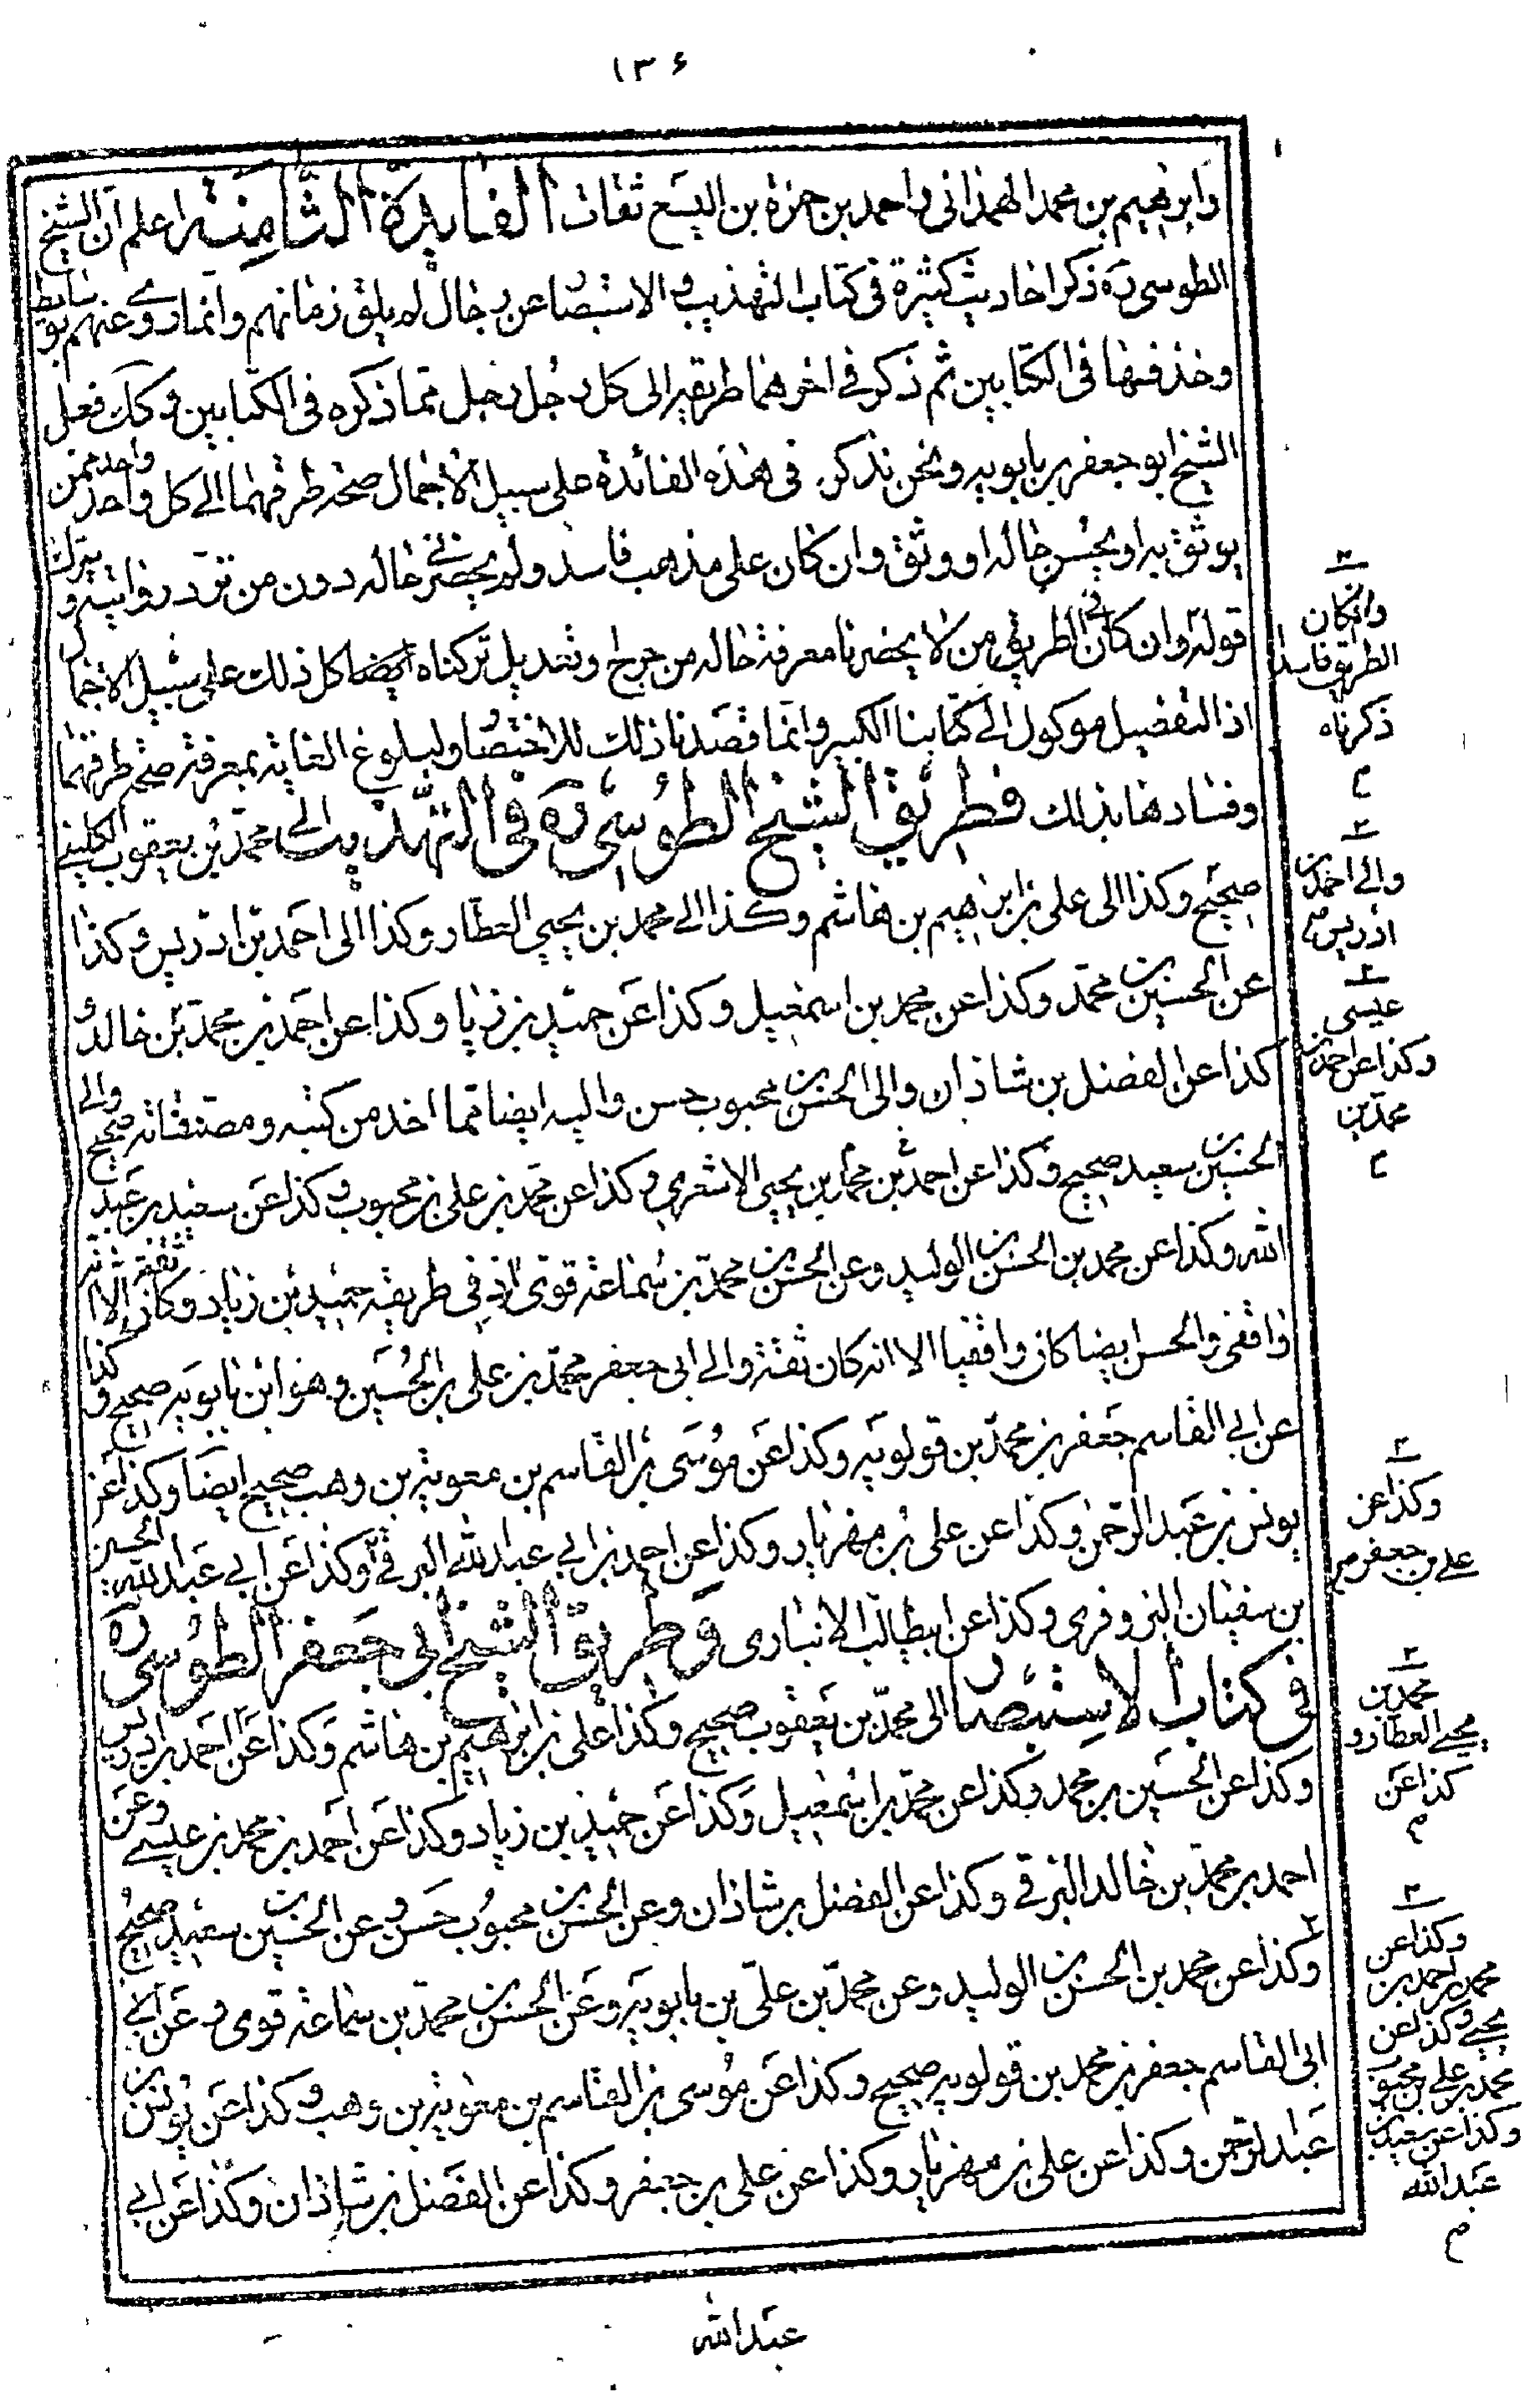 ۱۳۶
وابرهيم بن محمد الهمذانى واحمد بن حمزة بن اليسع ثقات الفايدة الثامنة اعلم ان الشيخ
الطوسى ره ذكر احاديث كثيرة فى كتاب التهذيب و الاستبصار عن رجال لم يلق زمانهم وانما روى عنهم بوسايط
وحذفها فى الكتابين ثم ذكر فى اخرهما طريقه الى كل رجل رجل مما ذكره فى الكتابين وكك فعل
الشيخ ابو جعفر بن بابويه ونحن نذكر فى هذه الفائدة على سبيل الاجمال صحة طرقهما الى كل واحد واحد ممن
يوثق به او يحسن حاله او وثق وان كان على مذهب فاسد ولم يحضرنى حاله دون من ترد روايته و يترك
قوله وان كان فى الطريق من لا يحضرنا معرفة حاله من جرح وتعديل تركناه ايضا كل ذلك على سبيل الاجمال
اذ التفصيل موكول الى كتابنا الكبير وانما قصدنا ذلك للاختصار ولبلوغ الغاية بمعرفة صحة طرقهما
وفسادها بذلك فطريق الشيخ الطوسى ره فى التهذيب الى محمد بن يعقوب الكلينى
صحيح وكذا الى على بن ابرهيم بن هاشم وكذا الى محمد بن يحيى العطار وكذا الى احمد بن ادريس وكذا
عن الحسين بن محمد وكذا عن محمد بن اسمعيل وكذا عن حميد بن زياد وكذا عن احمد بن محمد بن خالد و
كذا عن الفضل بن شاذان والى الحسن بن محبوب حسن واليه ايضا مما اخذ من كتبه ومصنفاته صحيح والى
الحسين بن سعيد صحيح وكذا عن احمد بن محمد بن يحيى الاشعرى وكذا عن محمد بن على بن محبوب وكذا عن سعيد بن عبد
الله وكذا عن محمد بن الحسن بن الوليد وعن الحسن بن محمد بن سماعة قوى اذ فى طريقه حميد بن زياد وكان ثقة الا انه
واقفى والحسن ايضا كان واقفيا الا انه كان ثقة والى ابى جعفر محمد بن على بن الحسين وهو ابن بابويه صحيح و كذا
عن ابى القاسم جعفر بن محمد بن قولويه وكذا عن موسى بن القاسم بن معوية بن وهب صحيح ايضا وكذا عن
يونس بن عبد الرحمن وكذا عن على بن مهزيار وكذا عن احمد بن ابى عبد الله البرقى وكذا عن ابى عبد الله الحسين
بن سفيان البزوفرى وكذا عن ابيطالب الانبارى وطريق الشيخ ابى جعفر الطوسى ره
فى كتاب الاستبصار الى محمد بن يعقوب صحيح وكذا على بن ابرهيم بن هاشم وكذا عن احمد بن ادريس
وكذا عن الحسين بن محمد وكذا عن محمد بن اسمعيل وكذا عن حميد بن زياد وكذا عن احمد بن محمد بن عيسى وعن
احمد بن محمد بن خالد البرقى وكذا عن الفضل بن شاذان وعن الحسن بن محبوب حسن وعن الحسين بن سعيد صحيح
وكذا عن محمد بن الحسن بن الوليد وعن محمد بن على بن بابويه وعن الحسن بن محمد بن سماعة قوى وعن ابى
ابى القاسم جعفر بن محمد بن قولويه صحيح وكذا عن موسى بن القاسم بن معوية بن وهب وكذا عن يونس بن
عبد الرحمن وكذا عن على بن مهزيار وكذا عن على بن جعفر وكذا عن الفضل بن شاذان وكذا عن ابى
عبد الله
وان كان
الطريق فاسدا
ذكرناه
والى احمد بن
ادريس
عيسى
وكذا عن احمد بن
محمد بن
وكذا عن
على بن جعفر
محمد بن
يحيى العطار و
كذا عن
وكذا عن
محمد بن احمد بن
يحيى وكذا عن
محمد بن على بن محبوب
وكذا عن سعيد بن
عبد الله